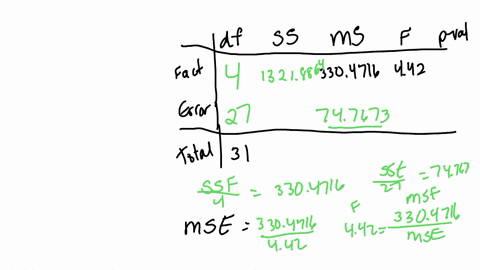 df SS MS F p-val
Fact 4 1321.8864 330.4716 4.42
Error 27 74.7673
Total 31
SSF/4 = 330.4716
SSE/27 = 74.767
MSE = 330.4716/4.42
F MSF
4.42 = 330.4716/MSE